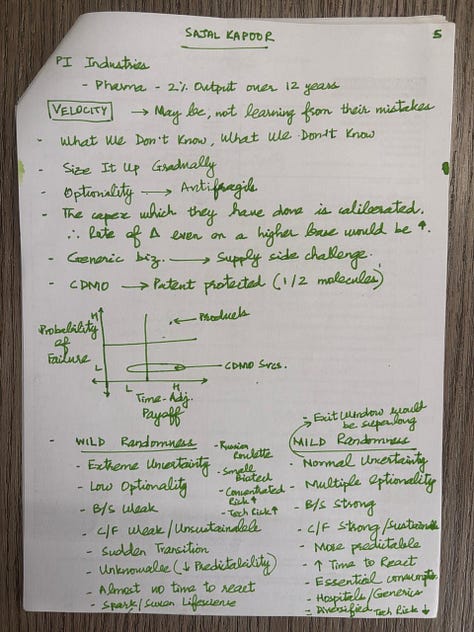 SAJAL KAPOOR
5
PI Industries
- Pharma - 2% Output over 12 years
VELOCITY → May be, not learning from their mistakes
- What We Don't Know, What We Don't Know
- Size It Up Gradually
- Optionality → Antifragile
- The capex which they have done is calibrated.
∴ Rate of Δ even on a higher base would be ↑.
- Generic biz. → Supply side challenge.
- CDMO → Patent protected (1/2 molecules)
H
Products
Probability of Failure
L
CDMO Srcs.
L H
Time-Adj. Payoff
- Exit Window would be superlong
- WILD Randomness
- Extreme Uncertainty
- Low Optionality
- B/S Weak
- C/F Weak/Unsustainable
- Sudden Transition
- Unknowable (↓ Predictability)
- Almost no time to react
- Spark/Suven Lifescience
- Russian Roulette
- Small Biotech
- Concentrated Risk ↑
- Tech Risk ↑
MILD Randomness
- Normal Uncertainty
- Multiple Optionality
- B/S Strong
- C/F Strong/Sustainable
- More predictable
- ↑ Time to React
- Essential consumption
- Hospitals/Generics
- Diversified Tech Risk ↓